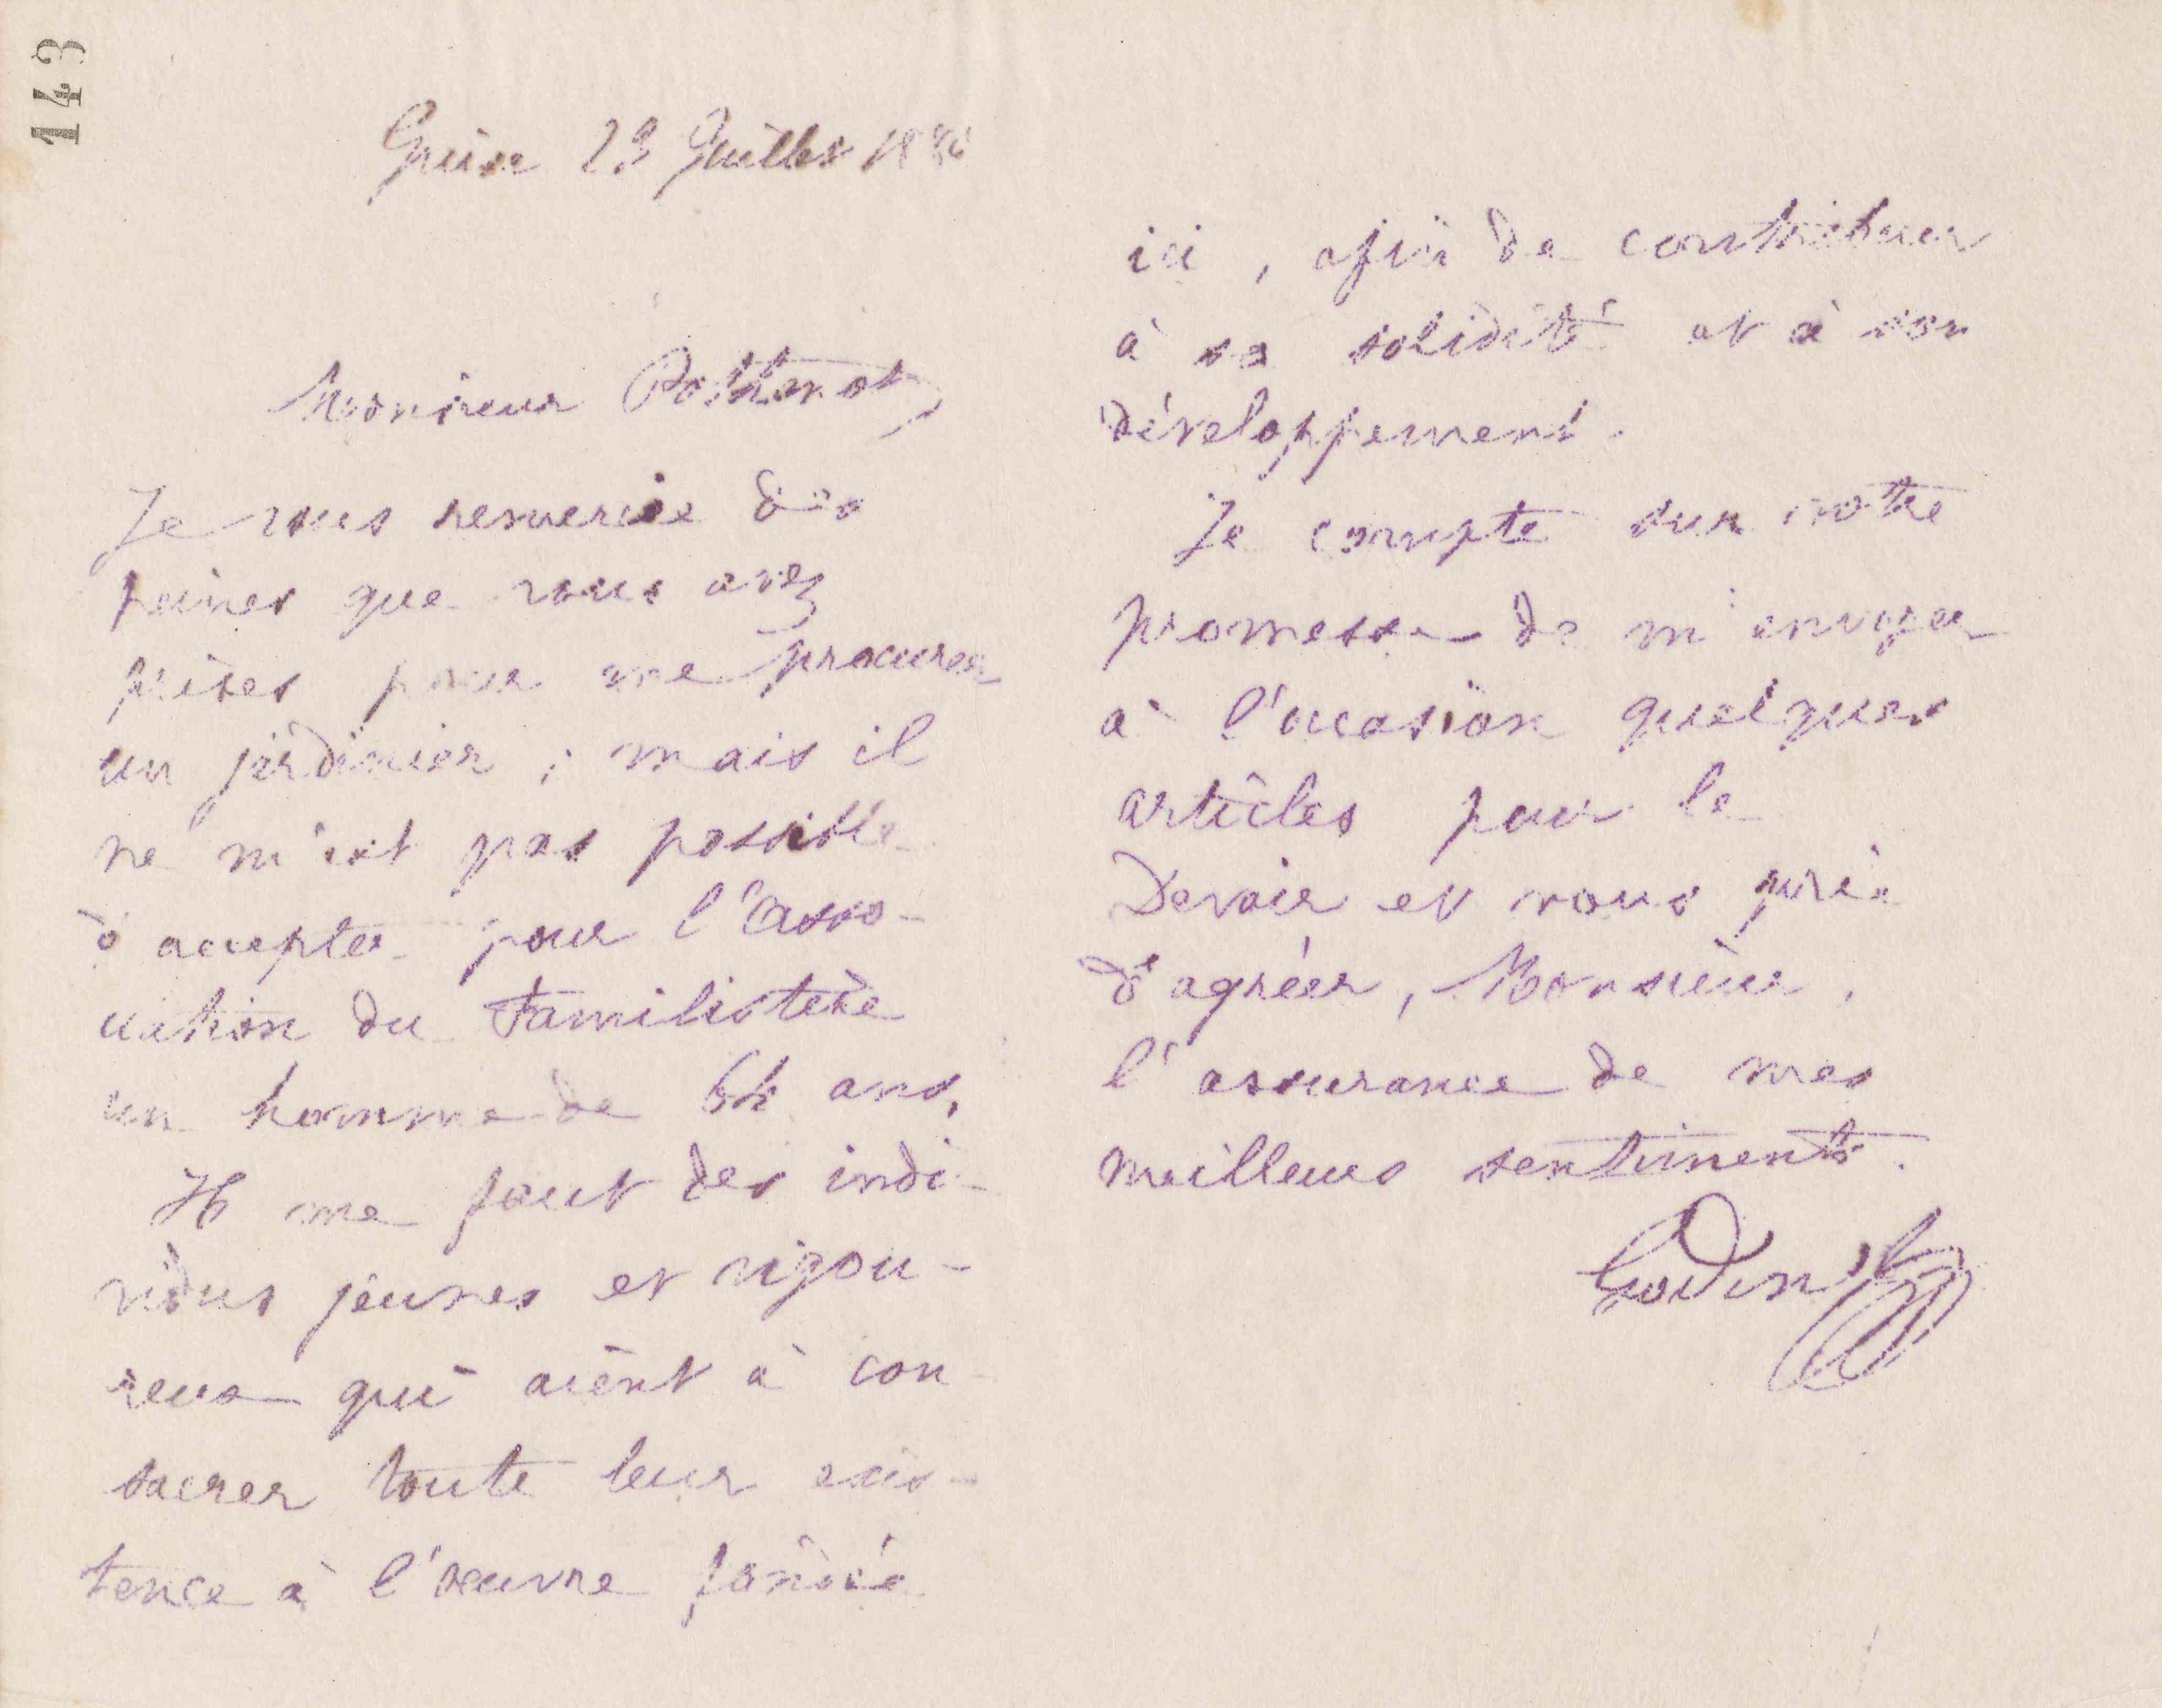 143
Guise 23 Juillet 188
Monsieur
Je vous remercie des
peines que vous avez
prises pour me procurer
un jardinier ; mais il
ne m'est pas possible
d'accepter pour l'Asso-
ciation du Familistère
un homme de 64 ans,
Il me faut des indi-
vidus jeunes et vigou-
reux qui aient à con-
sacrer toute leur exis-
tence à l'œuvre fondée
ici, afin de contribuer
à sa solidité et à son
développement.
Je compte sur votre
promesse de m'envoyer
à l'occasion quelques
articles pour le
Devoir et vous prie
d'agréer, Monsieur,
l'assurance de mes
meilleurs sentiments.
Godin